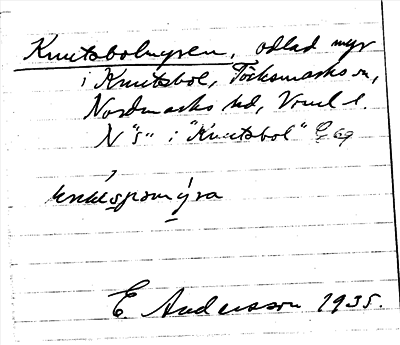 Knutsbolmyren, odlad myr
i Knutsbol, Töcksmarks sn,
Nordmarks hd, Vrml l.
N "s" i "Knutsbol" E 69
E Andersson 1935.